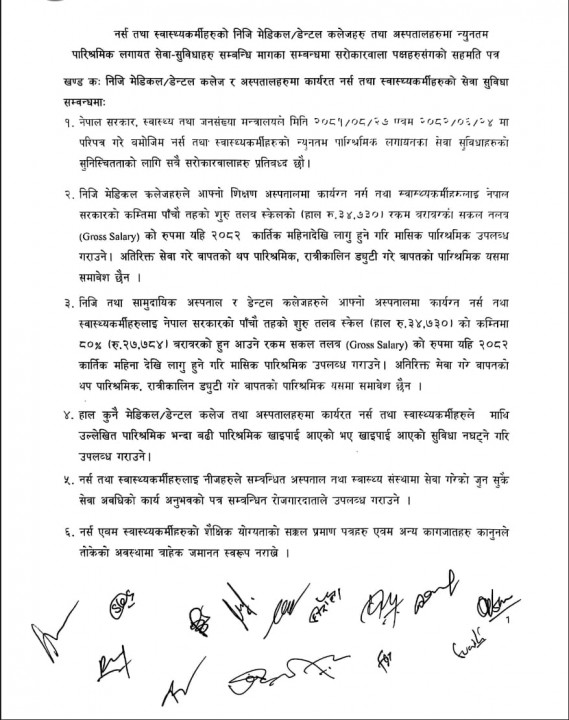 नर्स तथा स्वास्थ्यकर्मीहरुको निजि मेडिकल/डेन्टल कलेजहरु तथा अस्पतालहरुमा न्युनतम
पारिश्रमिक लगायत सेवा-सुविधाहरु सम्बन्धि मागका सम्बन्धमा सरोकारवाला पक्षहरुसंगको सहमति पत्र
खण्ड कः निजि मेडिकल/डेन्टल कलेज र अस्पतालहरुमा कार्यरत नर्स तथा स्वास्थ्यकर्मीहरुको सेवा सुविधा
सम्बन्धमाः
१. नेपाल सरकार, स्वास्थ्य तथा जनसंख्या मन्त्रालयले मिति २०८१/०८/२७ एवम २०८२/०६/२४ मा
परिपत्र गरे बमोजिम नर्स तथा स्वास्थ्यकर्मीहरुको न्युनतम पारिश्रमिक लगायतका सेवा सुविधाहरुको
सुनिश्चितताको लागि सवै सरोकारवालाहरु प्रतिवध्द छौं।
२. निजि मेडिकल कलेजहरुले आफ्नो शिक्षण अस्पतालमा कार्यरत नर्स तथा स्वास्थ्यकर्मीहरुलाइ नेपाल
सरकारको कम्तिमा पाँचौ तहको शुरु तलव स्केलको (हाल रु.३४,७३०) रकम वरावरको सकल तलव
(Gross Salary) को रुपमा यहि २०८२ कार्तिक महिनादेखि लागु हुने गरि मासिक पारिश्रमिक उपलब्ध
गराउने। अतिरिक्त सेवा गरे बापतको थप पारिश्रमिक, रात्रीकालिन ड्युटी गरे वापतको पारिश्रमिक यसमा
समावेश छैन ।
३. निजि तथा सामुदायिक अस्पताल र डेन्टल कलेजहरुले आफ्नो अस्पतालमा कार्यरत नर्स तथा
स्वास्थ्यकर्मीहरुलाइ नेपाल सरकारको पाँचौ तहको शुरु तलव स्केल (हाल रु.३४,७३०) को कम्तिमा
८०% (रु.२७,७८४) वरावरको हुन आउने रकम सकल तलव (Gross Salary) को रुपमा यहि २०८२
कार्तिक महिना देखि लागु हुने गरि मासिक पारिश्रमिक उपलब्ध गराउने। अतिरिक्त सेवा गरे वापतको
थप पारिश्रमिक, रात्रीकालिन ड्युटी गरे वापतको पारिश्रमिक यसमा समावेश छैन ।
४. हाल कुनै मेडिकल/डेन्टल कलेज तथा अस्पतालहरुमा कार्यरत नर्स तथा स्वास्थ्यकर्मीहरुले माथि
उल्लेखित पारिश्रमिक भन्दा बढी पारिश्रमिक खाइपाई आएको भए खाइपाई आएको सुविधा नघट्ने गरि
उपलब्ध गराउने।
५. नर्स तथा स्वास्थ्यकर्मीहरुलाइ नीजहरुले सम्वन्धित अस्पताल तथा स्वास्थ्य संस्थामा सेवा गरेको जुन सुकै
सेवा अवधिको कार्य अनुभवको पत्र सम्वन्धित रोजगारदाताले उपलब्ध गराउने ।
६. नर्स एवम स्वास्थ्यकर्मीहरुको शैक्षिक योग्यताको सक्कल प्रमाण पत्रहरु एवम अन्य कागजातहरु कानुनले
तोकेको अवस्थामा वाहेक जमानत स्वरूप नराख्ने ।